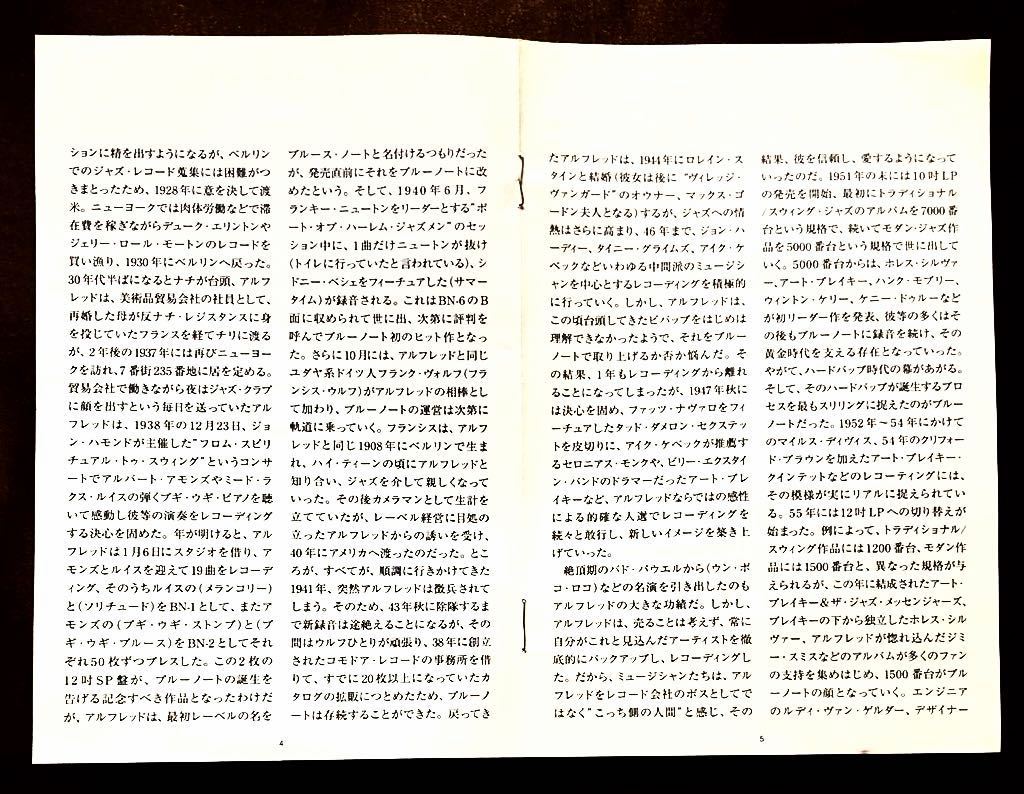 ションに精を出すようになるが、ベルリン
でのジャズ・レコード蒐集には困難がつ
きまとったため、1928年に意を決して渡
米。ニューヨークでは肉体労働などで滞
在費を稼ぎながらデューク・エリントンや
ジェリー・ロール・モートンのレコードを
買い漁り、1930年にベルリンへ戻った。
30年代半ばになるとナチが台頭、アルフ
レッドは、美術品貿易会社の社員として、
再婚した母が反ナチ・レジスタンスに身
を投じていたフランスを経てチリに渡る
が、2年後の1937年には再びニューヨー
クを訪れ、7番街235番地に居を定める。
貿易会社で働きながら夜はジャズ・クラブ
に顔を出すという毎日を送っていたアル
フレッドは、1938年の12月23日、ジョ
ン・ハモンドが主催した"フロム・スピリ
チュアル・トゥ・スウィング"というコンサ
ートでアルバート・アモンズやミード・ラ
クス・ルイスの弾くブギ・ウギ・ピアノを聴
いて感動し彼等の演奏をレコーディング
する決心を固めた。年が明けると、アル
フレッドは1月6日にスタジオを借り、ア
モンズとルイスを迎えて19曲をレコーデ
ィング、そのうちルイスの〈メランコリー〉
と〈ソリチュード〉をBN-1として、またア
モンズの〈ブギ・ウギ・ストンプ〉と〈ブ
ギ・ウギ・ブルース〉をBN-2としてそれ
ぞれ50枚ずつプレスした。この2枚の
12吋SP盤が、ブルーノートの誕生を
告げる記念すべき作品となったわけだ
が、アルフレッドは、最初レーベルの名を
ブルース・ノートと名付けるつもりだった
が、発売直前にそれをブルーノートに改
めたという。そして、1940年6月、フ
ランキー・ニュートンをリーダーとする"ポ
ート・オブ・ハーレム・ジャズメン"のセッ
ション中に、1曲だけニュートンが抜け
(トイレに行っていたと言われている)、シ
ドニー・ベシェをフィーチュアした〈サマー
タイム〉が録音される。これはBN-6のB
面に収められて世に出、次第に評判を
呼んでブルーノート初のヒット作となっ
た。さらに10月には、アルフレッドと同じ
ユダヤ系ドイツ人フランク・ヴォルフ(フラ
ンシス・ウルフ)がアルフレッドの相棒とし
て加わり、ブルーノートの運営は次第に
軌道に乗っていく。フランシスは、アルフ
レッドと同じ1908年にベルリンで生ま
れ、ハイ・ティーンの頃にアルフレッドと
知り合い、ジャズを介して親しくなって
いった。その後カメラマンとして生計を
立てていたが、レーベル経営に目処の
立ったアルフレッドからの誘いを受け、
40年にアメリカへ渡ったのだった。とこ
ろが、すべてが、順調に行きかけてきた
1941年、突然アルフレッドは徴兵されて
しまう。そのため、43年秋に除隊するま
で新録音は途絶えることになるが、その
間はウルフひとりが頑張り、38年に創立
されたコモドア・レコードの事務所を借
りて、すでに20枚以上になっていたカ
タログの拡販につとめたため、ブルーノ
ートは存続することができた。戻ってき
4
たアルフレッドは、1944年にロレイン・ス
タインと結婚(彼女は後に"ヴィレッジ・
ヴァンガード"のオウナー、マックス・ゴ
ードン夫人となる)するが、ジャズへの情
熱はさらに高まり、46年まで、ジョン・ハ
ーディー、タイニー・グライムズ、アイク・ケ
ベックなどいわゆる中間派のミュージシ
ャンを中心とするレコーディングを積極的
に行っていく。しかし、アルフレッドは、
この頃台頭してきたビバップをはじめは
理解できなかったようで、それをブルー
ノートで取り上げるか否か悩んだ。そ
の結果、1年もレコーディングから離れ
ることになってしまったが、1947年秋に
は決心を固め、ファッツ・ナヴァロをフィ
ーチュアしたタッド・ダメロン・セクステッ
トを皮切りに、アイク・ケベックが推薦す
るセロニアス・モンクや、ビリー・エクスタイ
ン・バンドのドラマーだったアート・ブレ
イキーなど、アルフレッドならではの感性
による的確な人選でレコーディングを
続々と敢行し、新しいイメージを築き上
げていった。
絶頂期のバド・パウエルから〈ウン・ポ
コ・ロコ〉などの名演を引き出したのも
アルフレッドの大きな功績だ。しかし、
アルフレッドは、売ることは考えず、常に
自分がこれと見込んだアーティストを徹
底的にバックアップし、レコーディングし
た。だから、ミュージシャンたちは、アル
フレッドをレコード会社のボスとしてで
はなく"こっち側の人間"と感じ、その
結果、彼を信頼し、愛するようになって
いったのだ。1951年の末には10吋LP
の発売を開始、最初にトラディショナル
/スウィング・ジャズのアルバムを7000番
台という規格で、続いてモダン・ジャズ作
品を5000番台という規格で世に出して
いく。5000番台からは、ホレス・シルヴァ
ー、アート・ブレイキー、ハンク・モブリー、
ウィントン・ケリー、ケニー・ドゥルーなど
が初リーダー作を発表、彼等の多くはそ
の後もブルーノートに録音を続け、その
黄金時代を支える存在となっていった。
やがて、ハードバップ時代の幕があがる。
そして、そのハードバップが誕生するプロ
セスを最もスリリングに捉えたのがブルー
ノートだった。1952年〜54年にかけて
のマイルス・デイヴィス、54年のクリフォー
ド・ブラウンを加えたアート・ブレイキー・
クインテットなどのレコーティングには、
その模様が実にリアルに捉えられてい
る。55年には12吋LPへの切り替えが
始まった。例によって、トラディショナル/
スウィング作品には1200番台、モダン作
品には1500番台と、異なった規格が与
えられるが、この年に結成されたアート・
ブレイキー&ザ・ジャズ・メッセンジャーズ、
ブレイキーの下から独立したホレス・シル
ヴァー、アルフレッドが惚れ込んだジミ
ー・スミスなどのアルバムが多くのファン
の支持を集めはじめ、1500番台がブル
ーノートの顔となっていく。エンジニア
のルディ・ヴァン・ゲルダー、デザイナー
5